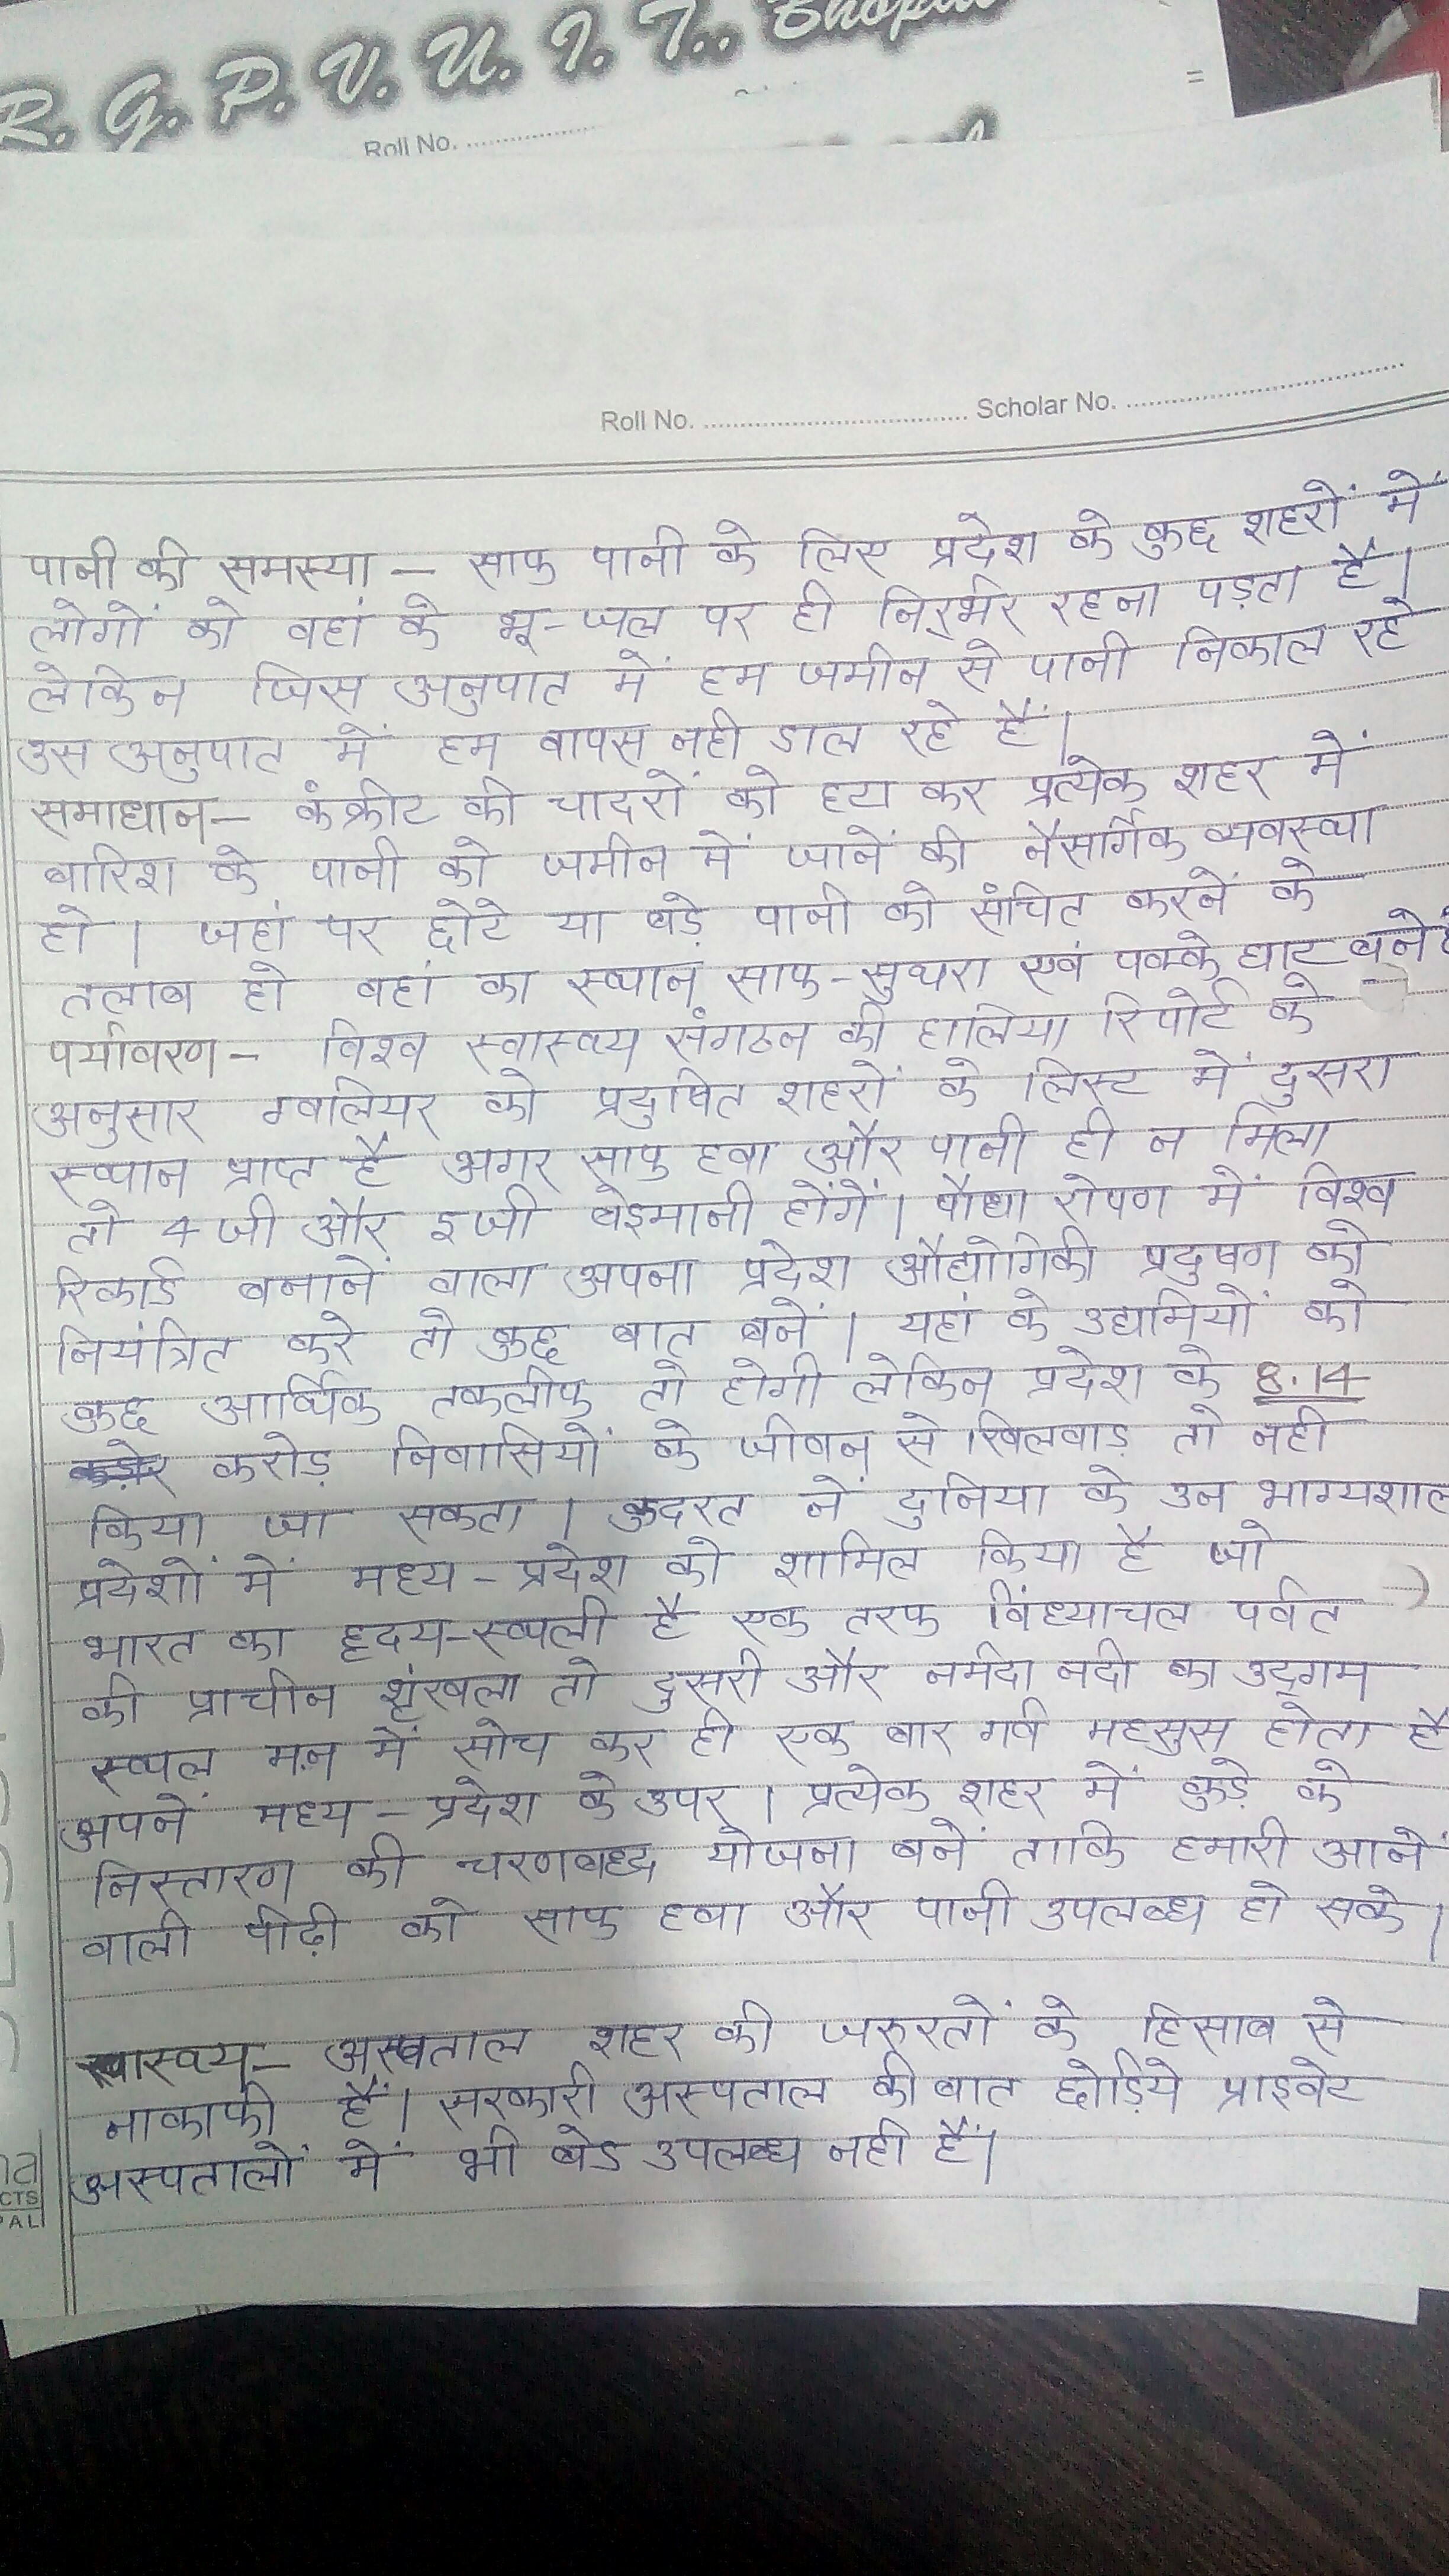 R. G. P. V. U. I. T., Bhopal
Roll No. ........................
Roll No. ........................ Scholar No. ........................
पानी की समस्या – साफ पानी के लिए प्रदेश के कुछ शहरों में
लोगों को वहां के भू-जल पर ही निर्भर रहना पड़ता है।
लेकिन जिस अनुपात में हम जमीन से पानी निकाल रहे
उस अनुपात में हम वापस नही डाल रहे हैं।
समाधान – कंक्रीट की चादरों को हटा कर प्रत्येक शहर में
बारिश के पानी को जमीन में जानें की नैसर्गिक व्यवस्था
हो। जहां पर छोटे या बड़े पानी को संचित करनें के
तलाब हो वहां का स्थान साफ-सुथरा एवं पक्के घाट बने
पर्यावरण – विश्व स्वास्थ्य संगठन की हालिया रिपोर्ट के
अनुसार ग्वालियर को प्रदुषित शहरों के लिस्ट में दुसरा
स्थान प्राप्त है अगर साफ हवा और पानी ही न मिला
तो 4 जी और 5 जी बेइमानी होंगें। पौधा रोपण में विश्व
रिकार्ड बनानें वाला अपना प्रदेश औद्योगिकी प्रदुषण को
नियंत्रित करे तो कुछ बात बनें। यहां के उद्यमियों को
कुछ आर्थिक तकलीफ तो होगी लेकिन प्रदेश के 8.14
करोड़ निवासियों के जीवन से खिलवाड़ तो नही
किया जा सकता। कुदरत नें दुनिया के उन भाग्यशाल
प्रदेशों में मध्य-प्रदेश को शामिल किया है जो
भारत का हृदय-स्थली है एक तरफ विंध्याचल पर्वत
की प्राचीन शृंखला तो दुसरी और नर्मदा नदी का उद्गम
स्थल मन में सोच कर ही एक बार गर्व महसुस होता है
अपनें मध्य-प्रदेश के उपर। प्रत्येक शहर में कुड़े के
निस्तारण की चरणबद्ध योजना बनें ताकि हमारी आनें
वाली पीढ़ी को साफ हवा और पानी उपलब्ध हो सके।
स्वास्थ्य – अस्पताल शहर की जरुरतों के हिसाब से
नाकाफी हैं। सरकारी अस्पताल की बात छोड़िये प्राइवेट
अस्पतालों में भी बेड उपलब्ध नही हैं।